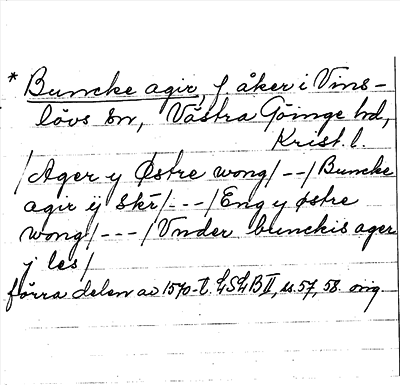 * Buncke agir, f. åker i Vins-
lövs sn, Västra Göinge hd,
Krist. l.
/Ager y Østre wong/--/Buncke
agir ij Skr/---/Eng y østre
wong/---/Vnder bunckis ager
j les/
förra delen av 1570-t. LSLB II, ss. 57, 58. orig.